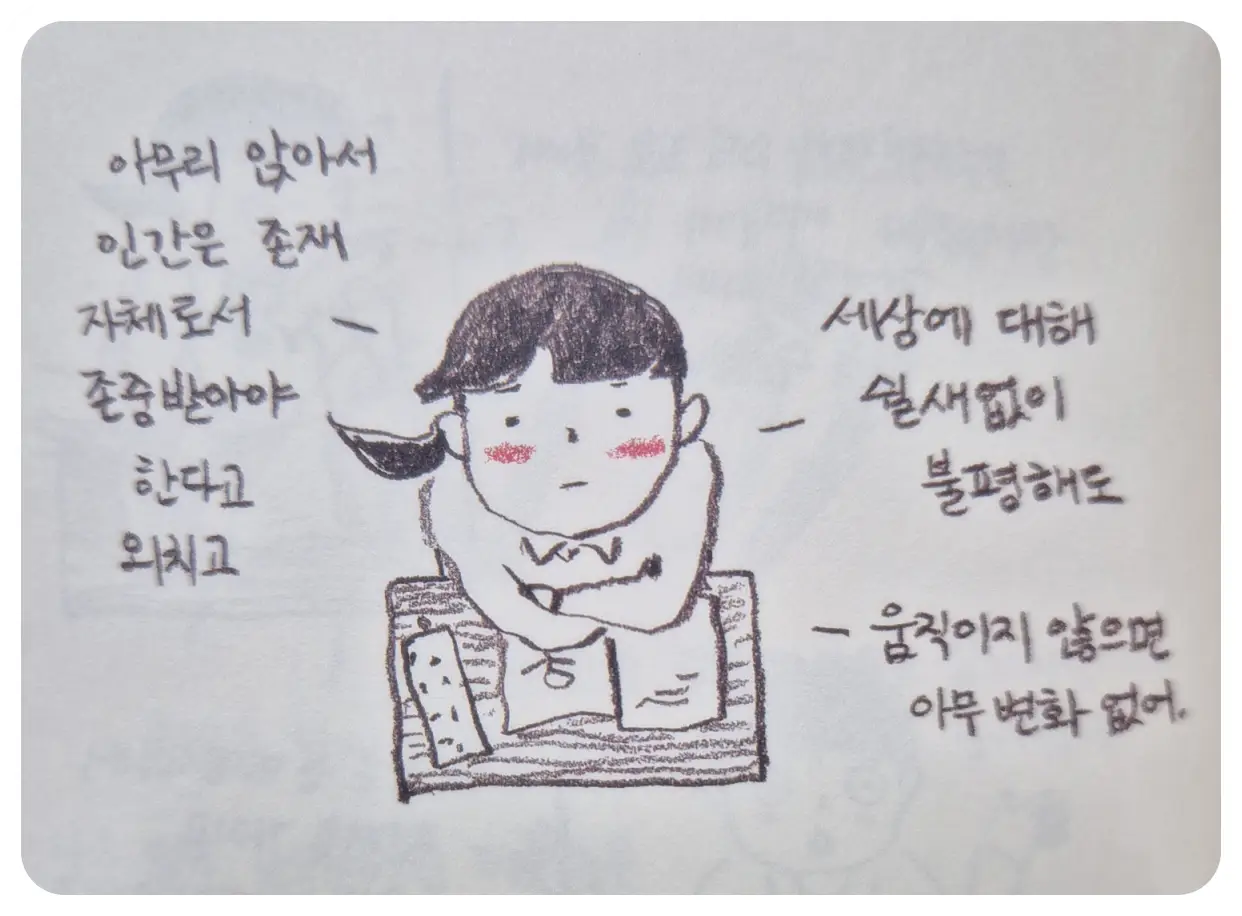 아무리 앉아서
인간은 존재
자체로서
존중받아야
한다고
외치고
세상에 대해
쉴새없이
불평해도
움직이지 않으면
아무 변화 없어.